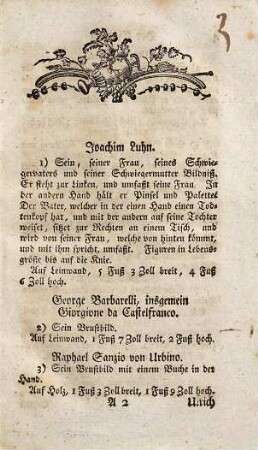 3
Joachim Luhn.
1) Sein, seiner Frau, seines Schwie-
gervaters und seiner Schwiegermutter Bildniß.
Er steht zur Linken, und umfaßt seine Frau. In
der andern Hand hält er Pinsel und Palette.
Der Vater, welcher in der einen Hand einen Tod-
tenkopf hat, und mit der andern auf seine Tochter
weiset, sitzet zur Rechten an einem Tisch, und
wird von seiner Frau, welche von hinten kömmt,
und mit ihm spricht, umfaßt. Figuren in Lebens-
größe bis auf die Knie.
Auf Leinwand, 5 Fuß 3 Zoll breit, 4 Fuß
6 Zoll hoch.
George Barbarelli, insgemein
Giorgione da Castelfranco.
2) Sein Brustbild.
Auf Leinwand, 1 Fuß 7 Zoll breit, 2 Fuß hoch.
Raphael Sanzio von Urbino.
3) Sein Brustbild mit einem Buche in der
Hand.
Auf Holz, 1 Fuß 3 Zoll breit, 1 Fuß 9 Zoll hoch.
A 2 Ulrich